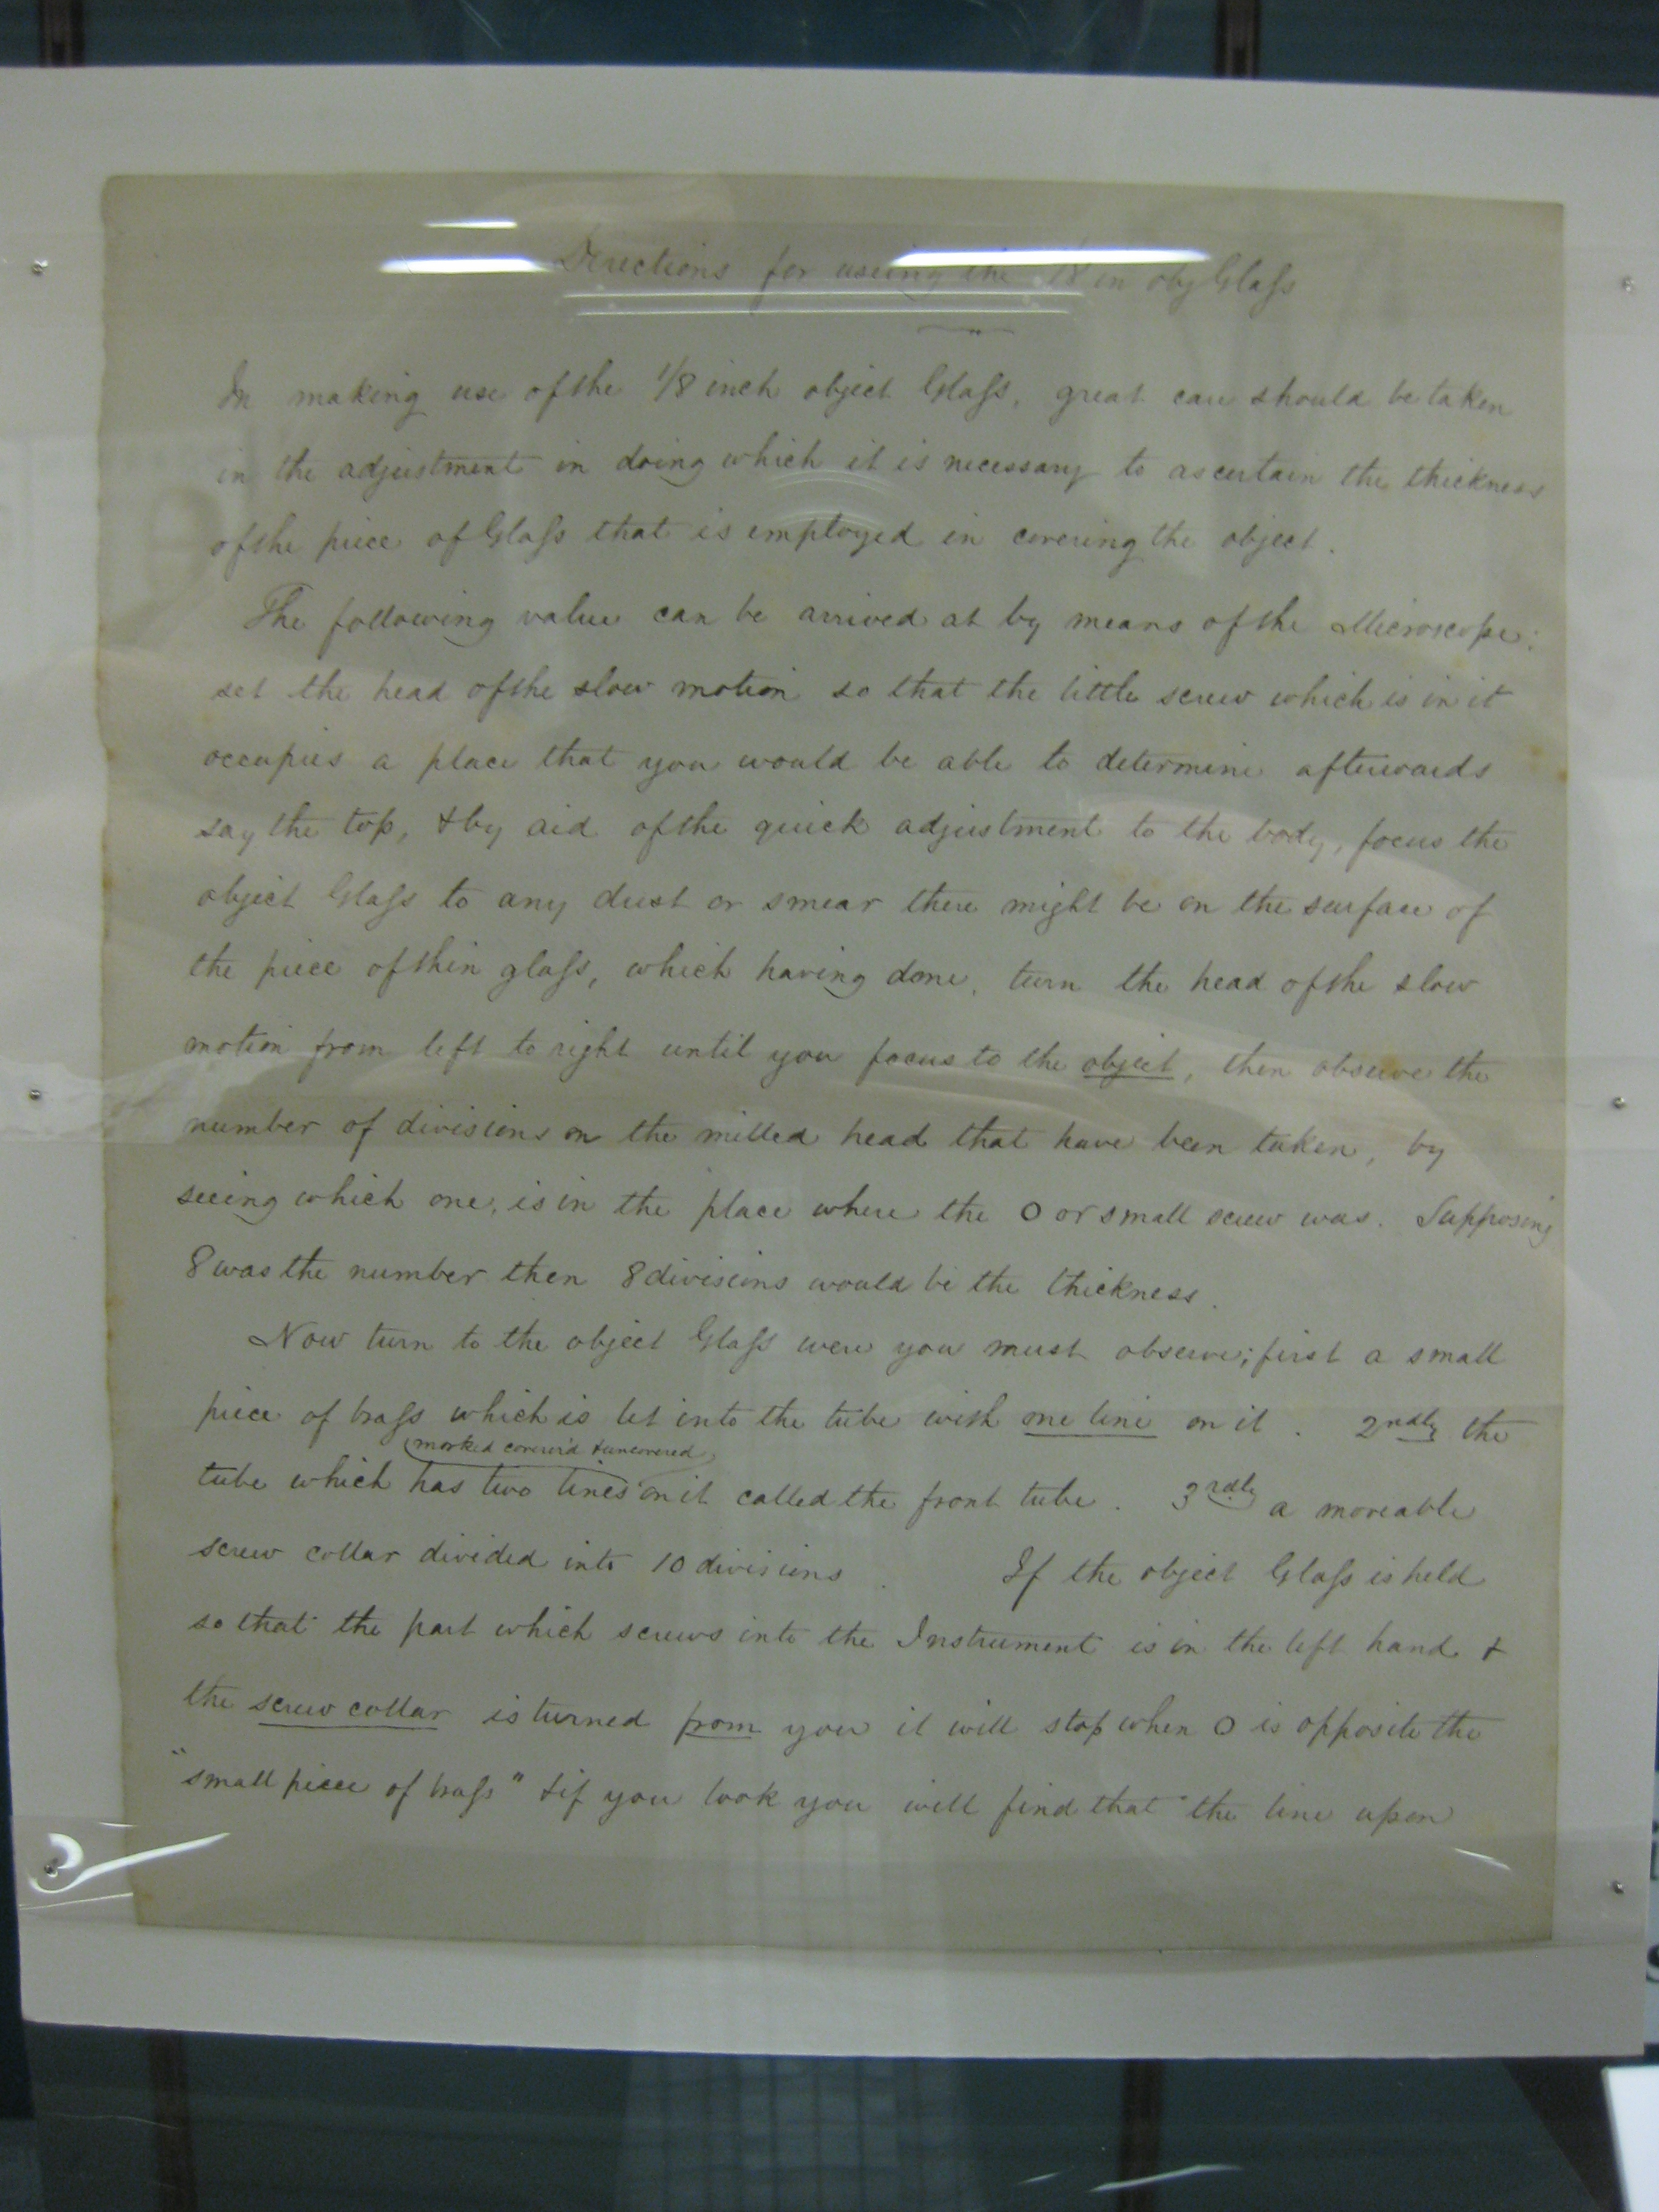 Directions for useing the 1/8 in obj Glass
In making use of the 1/8 inch object Glass, great care should be taken
in the adjustment in doing which it is necessary to ascertain the thickness
of the piece of Glass that is employed in covering the object.
The following value can be arrived at by means of the Microscope:
set the head of the slow motion so that the little screw which is in it
occupies a place that you would be able to determine afterwards
say the top, & by aid of the quick adjustment to the body, focus the
object Glass to any dust or smear there might be on the surface of
the piece of thin glass, which having done, turn the head of the slow
motion from left to right until you focus to the object, then observe the
number of divisions on the milled head that have been taken, by
seeing which one, is in the place where the 0 or small screw was. Supposing
8 was the number then 8 divisions would be the thickness.
Now turn to the object Glass were you must observe; first a small
piece of brass which is let into the tube with one line on it. 2ndly the
(marked cover'd & uncovered)
tube which has two lines on it called the front tube. 3rdly a moveable
screw collar divided into 10 divisions. If the object Glass is held
so that the part which screws into the Instrument is in the left hand &
the screw collar is turned from you it will stop when 0 is opposite the
"small piece of brass" & if you look you will find that the line upon